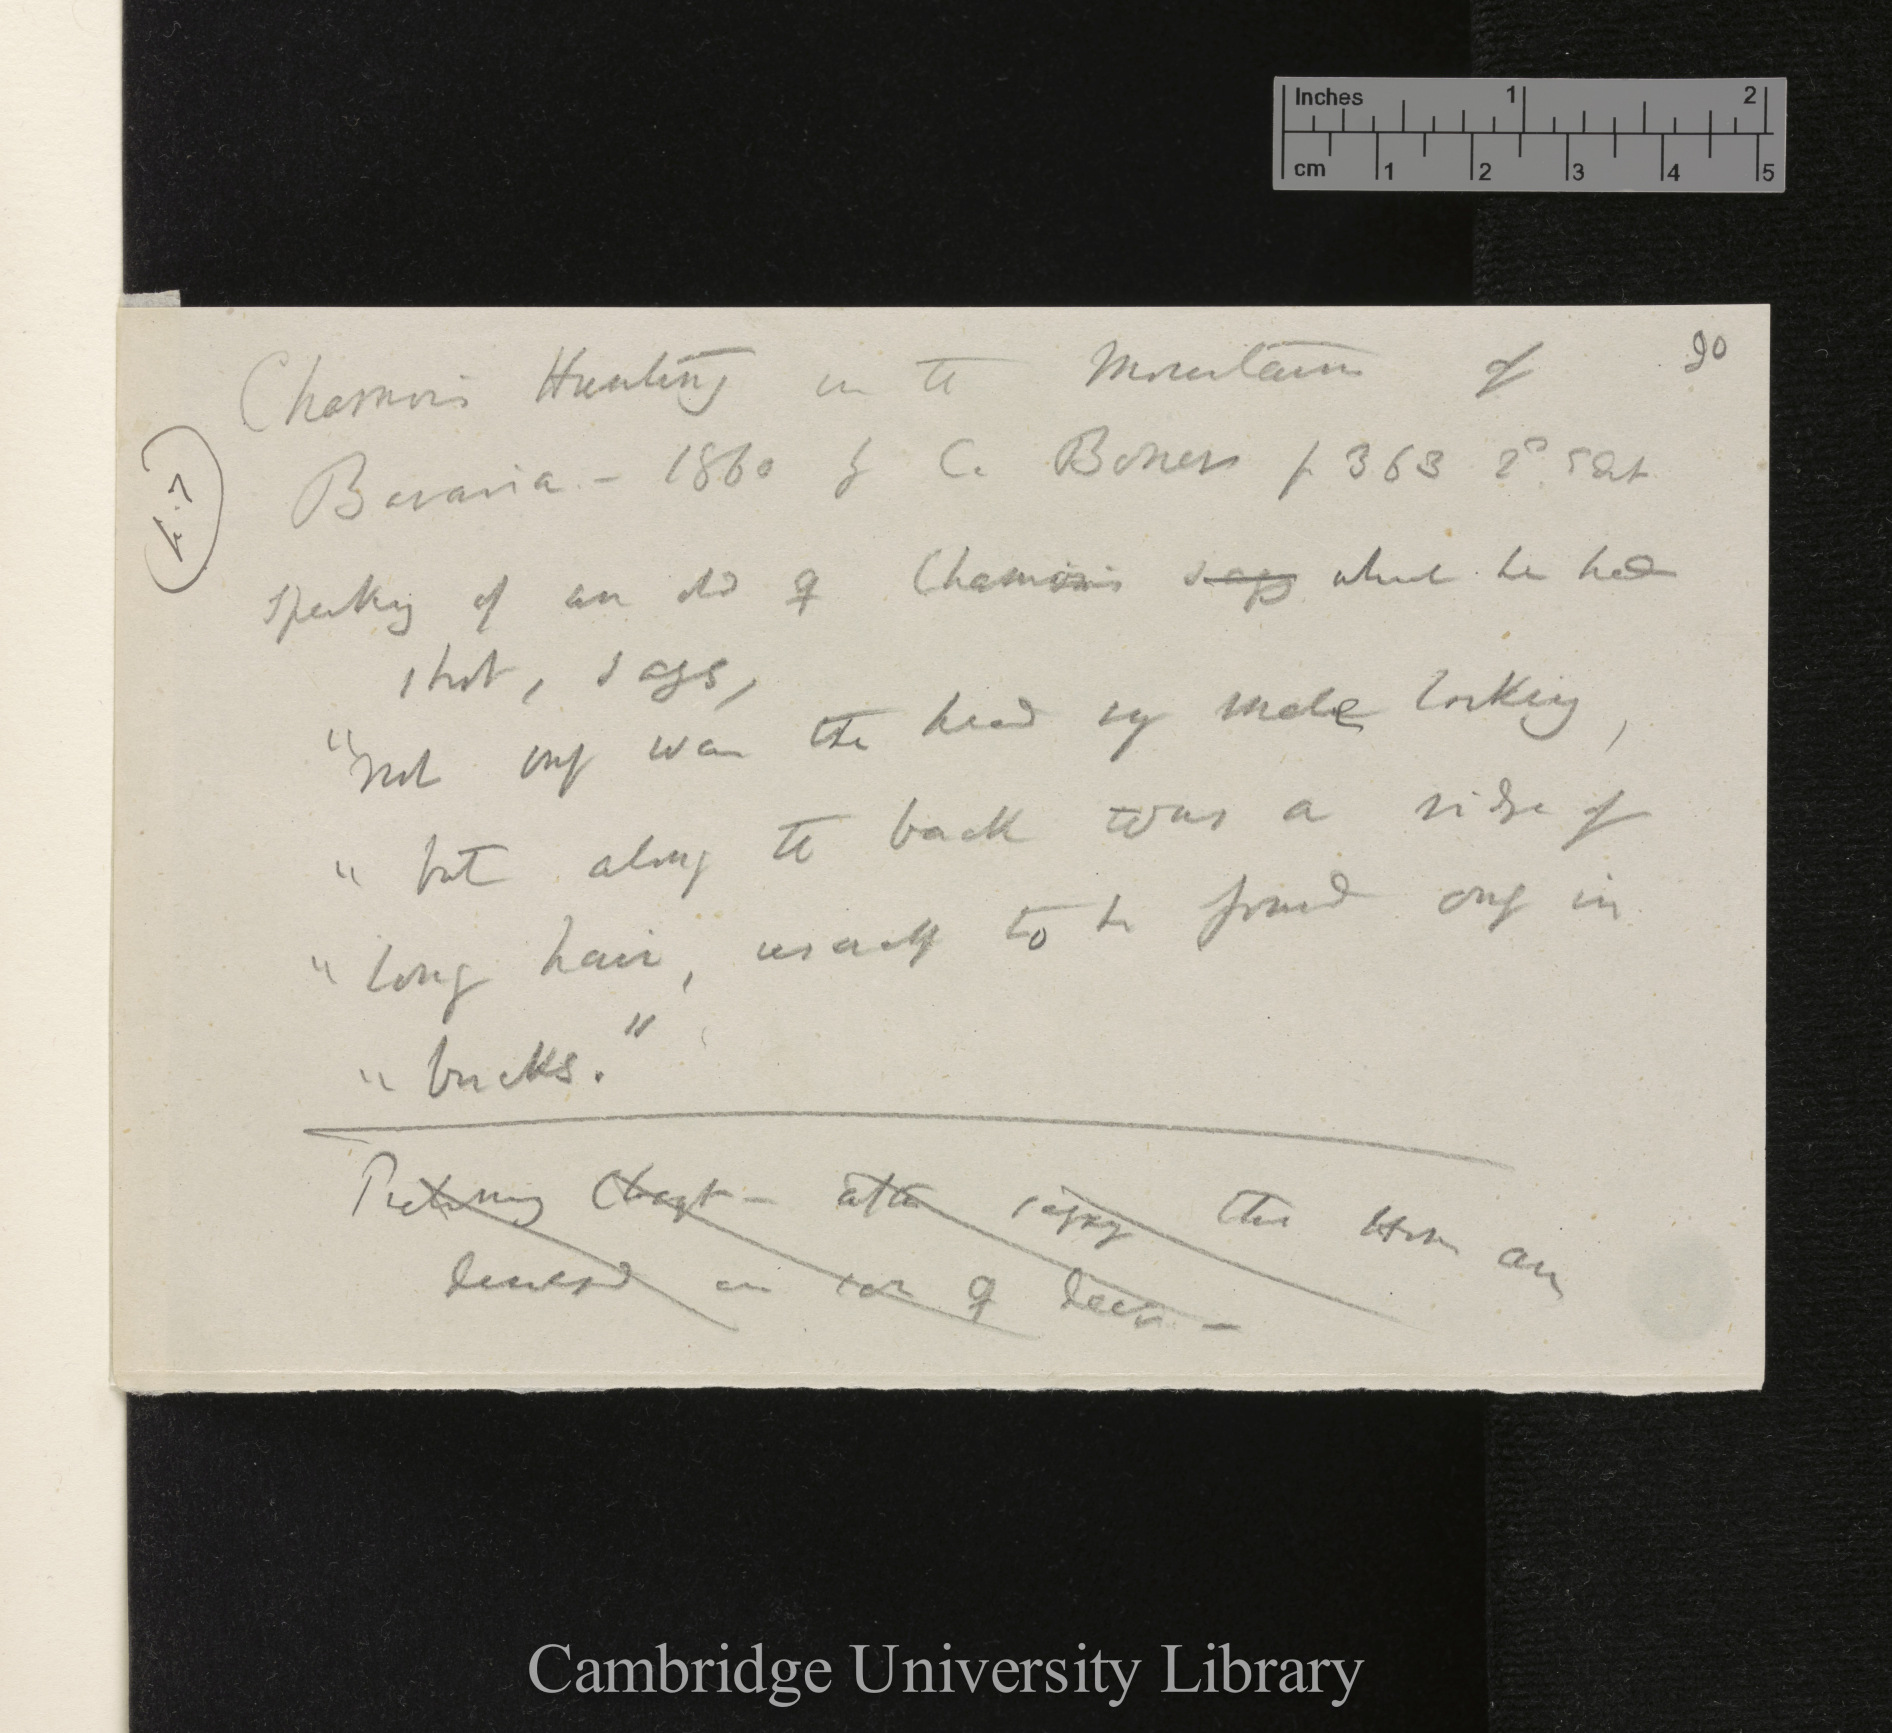 Inches 1 2
cm 1 2 3 4 5
90
Chamois Hunting in the Mountains of
Bavaria – 1860 by C. Boner p 363 2d Edit
Speaking of an old ♀ Chamois says which he had
shot, says,
"not only was the head very male looking,
" but along the back was a ridge of
" long hair, usually to be found only in
" bucks."
Chapt – after saying the Horns are
developed in ♀ deer –
Cambridge University Library